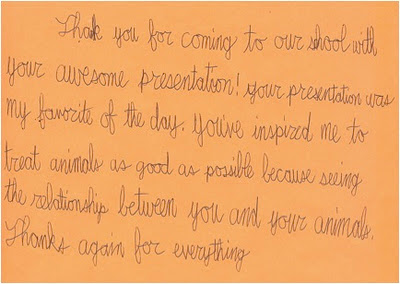 Thank you for coming to our shool with
your awesome presentation! your presentation was
my favorite of the day. You've inspired me to
treat animals as good as possible because seeing
the relationship between you and your animals.
Thanks again for everything